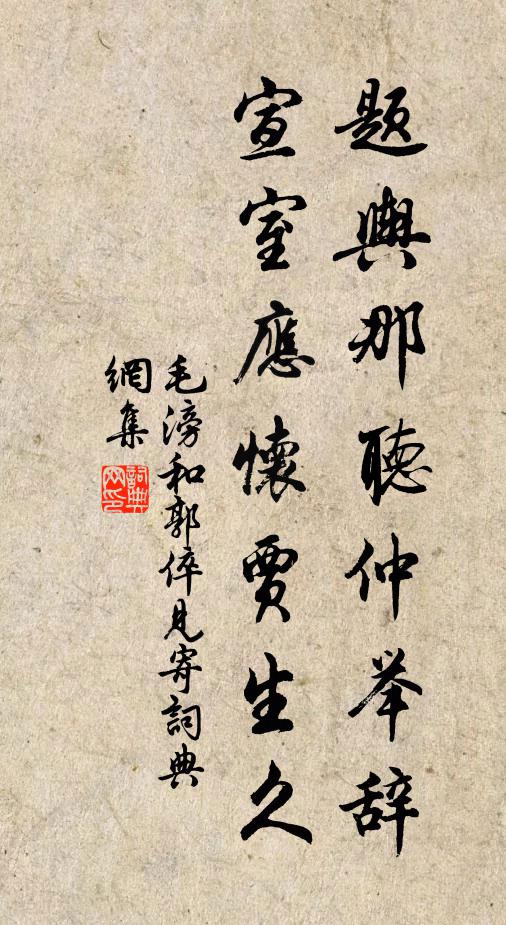 題輿那聽仲举辞
宣室應懷賈生久
毛滂和郭倅見寄詞典
網集
詞典網印